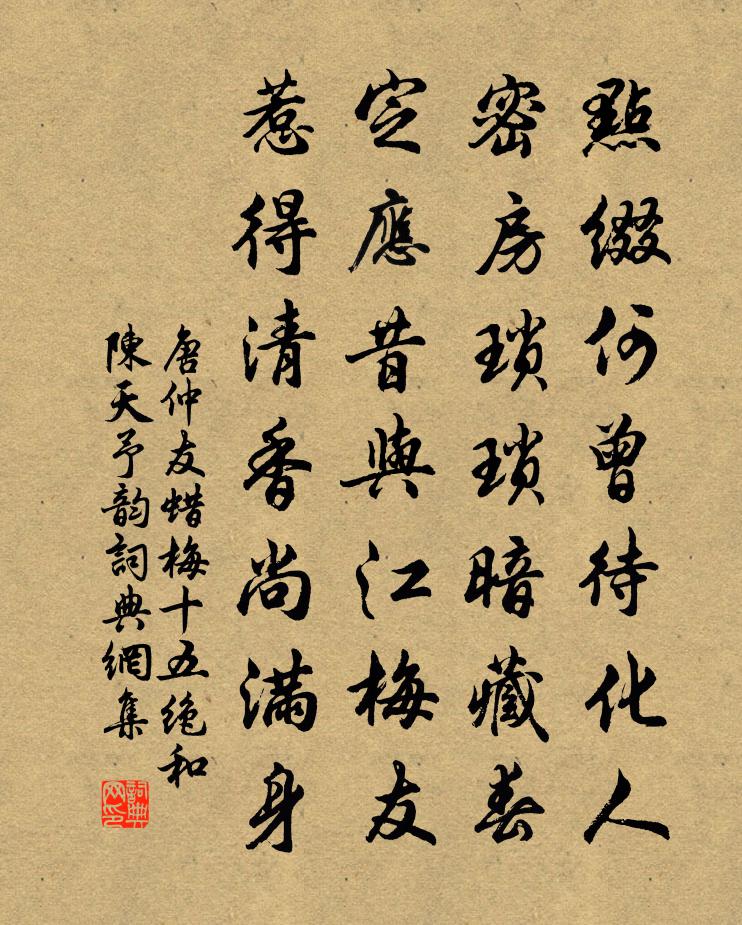 點綴何曾待化人
密房瑣瑣暗藏春
定應昔與江梅友
惹得清香尚滿身
唐仲友蜡梅十五绝和
陳天予韵詞典網集
詞典网印